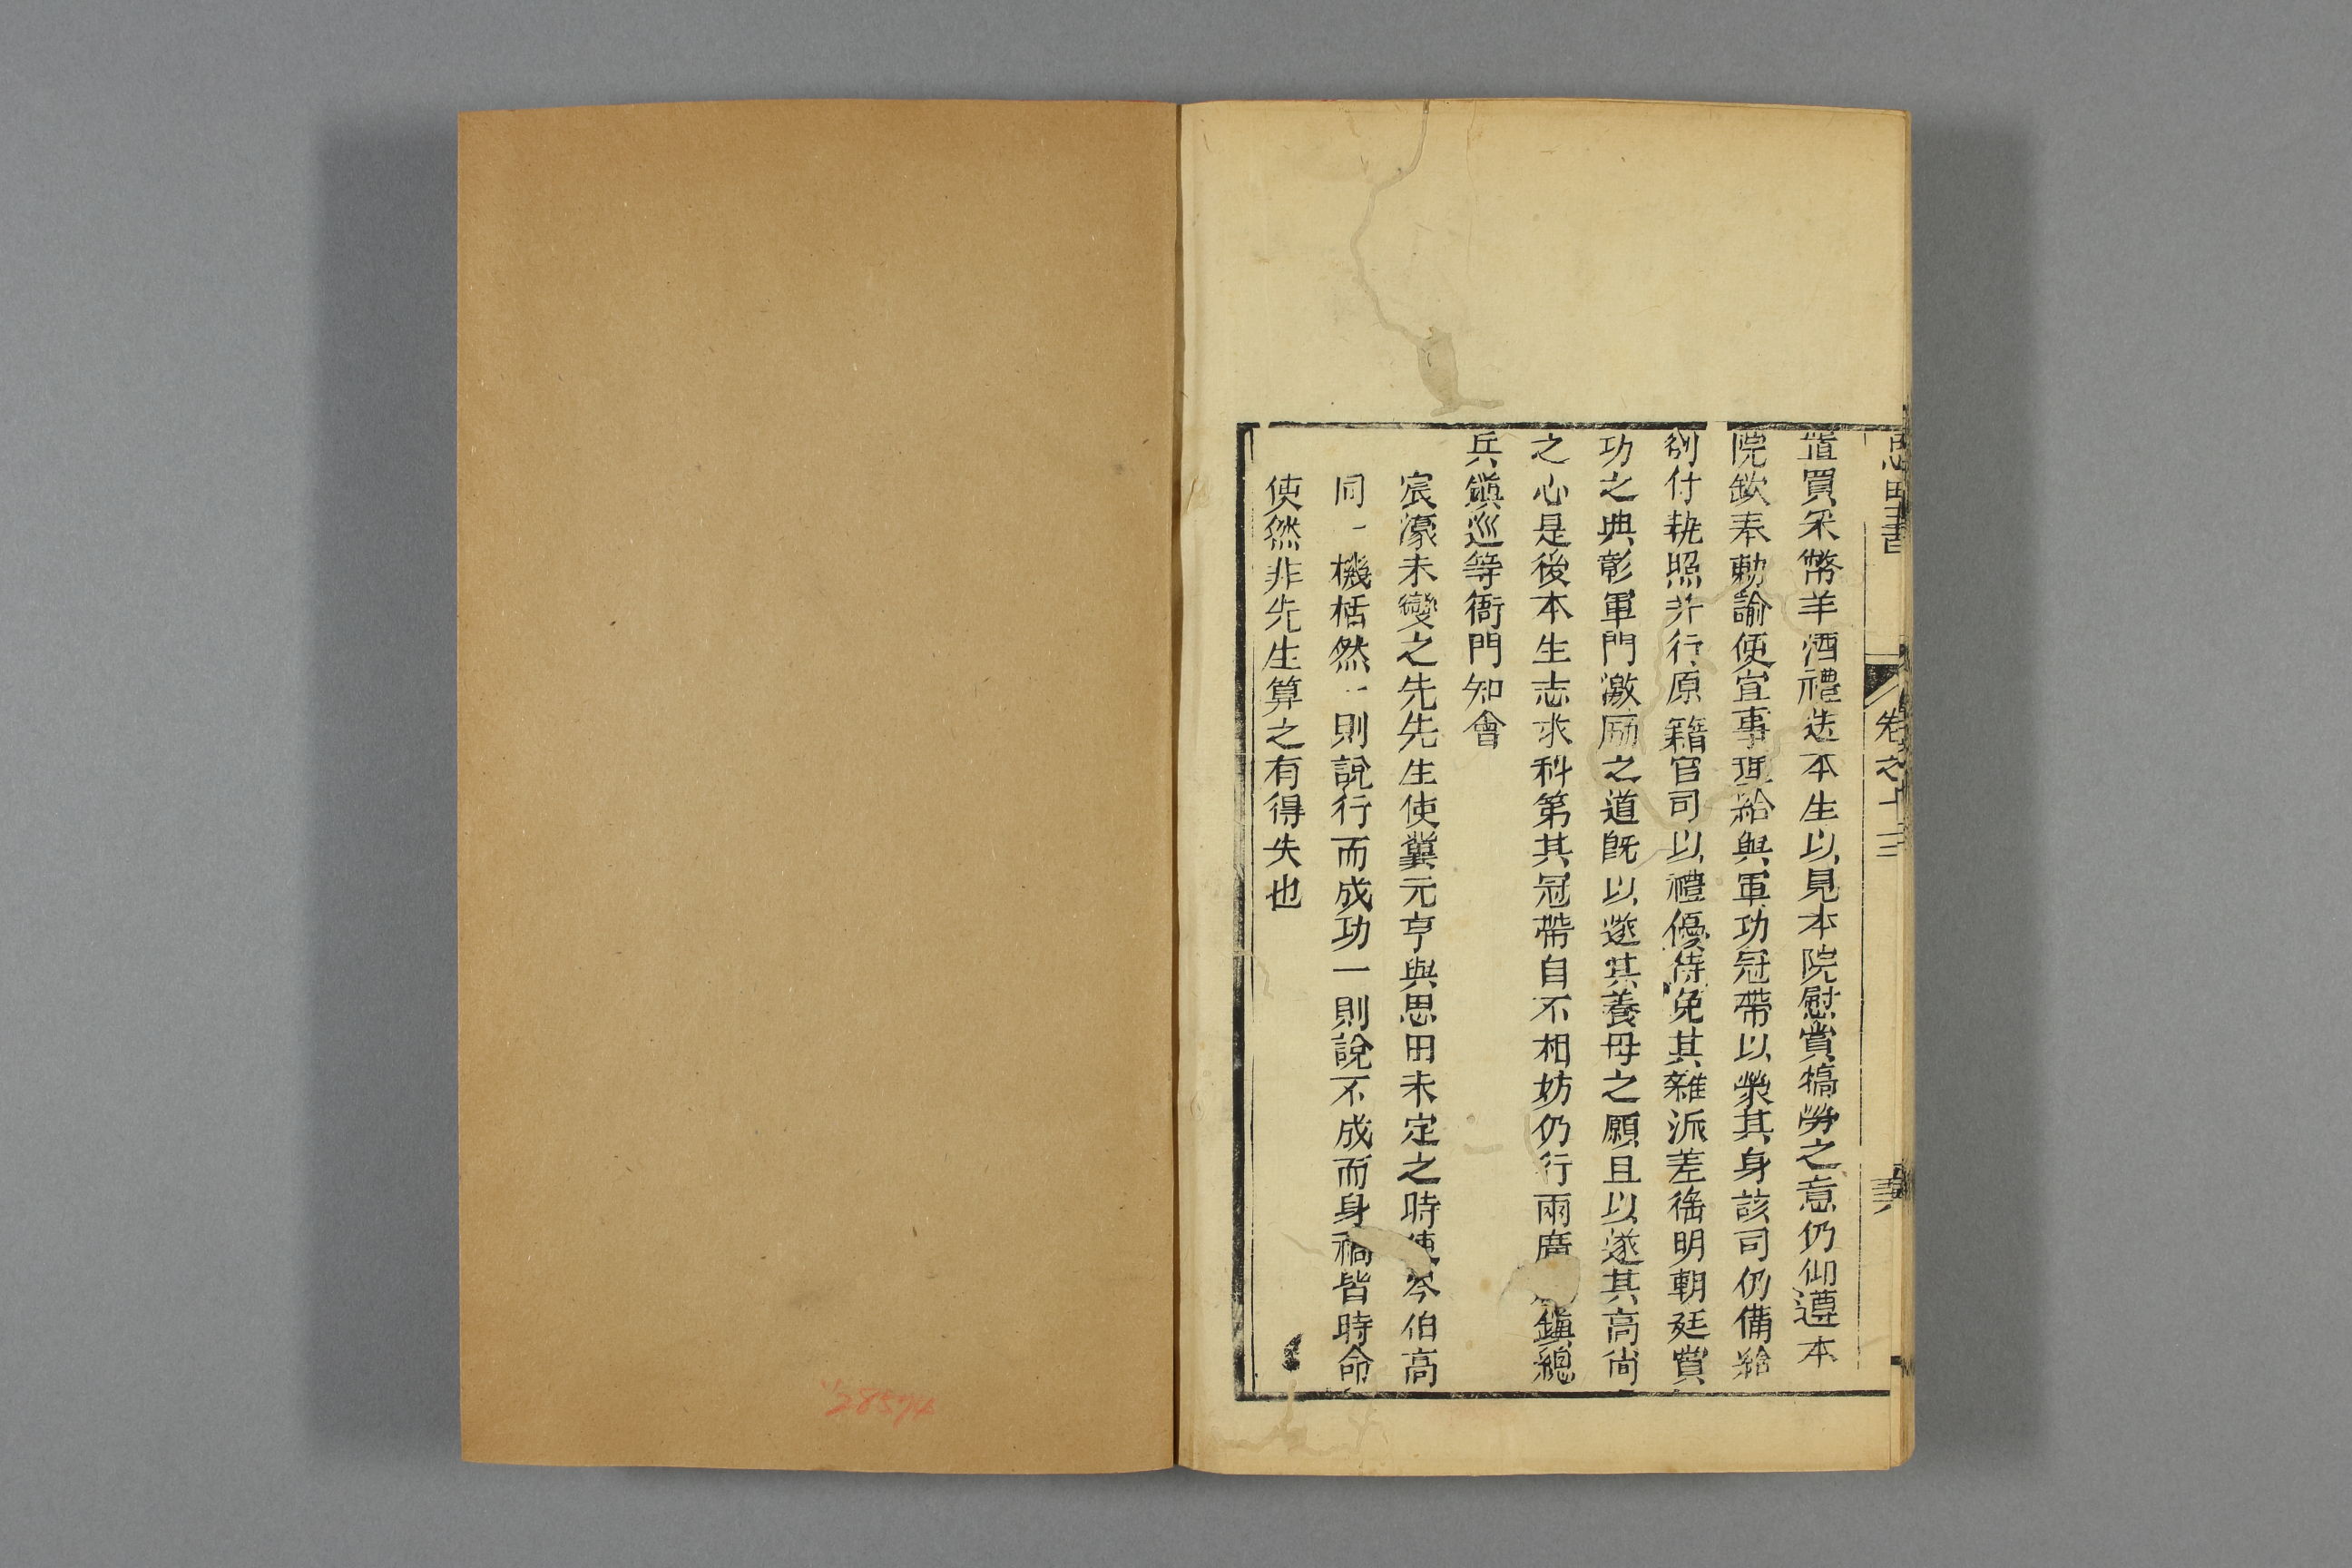 思田書 卷之十三
置買采幣羊酒禮送本生以見本院慰賞犒勞之意仍仰遵本
院欽奉勅諭便宜事理給與軍功冠帶以榮其身該司仍備給
劄付執照并行原籍官司以禮優待免其雜派差徭明朝廷賞
功之典彰軍門激勵之道旣以遂其養母之願且以遂其高尙
之心是後本生志求科第其冠帶自不相妨仍行兩廣鎭總
兵鎭巡等衙門知會
宸濠未變之先先生使冀元亨與思田未定之時使岑伯高
同一機栝然一則說行而成功一則說不成而身禍皆時命
使然非先生算之有得失也
38574